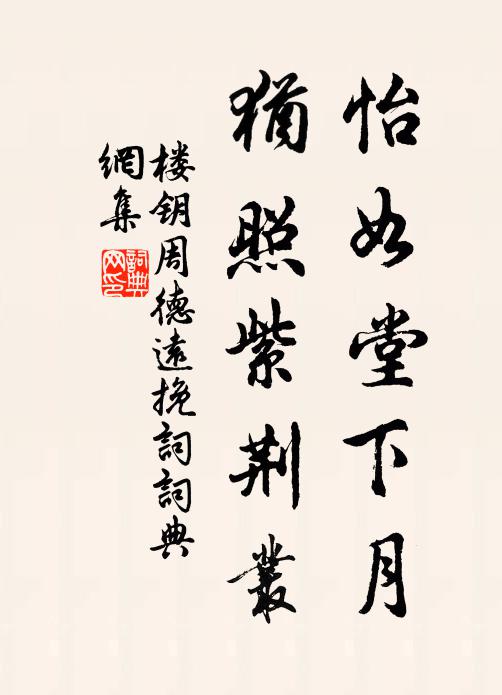 怡如堂下月
猶照紫荆叢
楼钥周德遠挽詞詞典
網集
詞典
网印